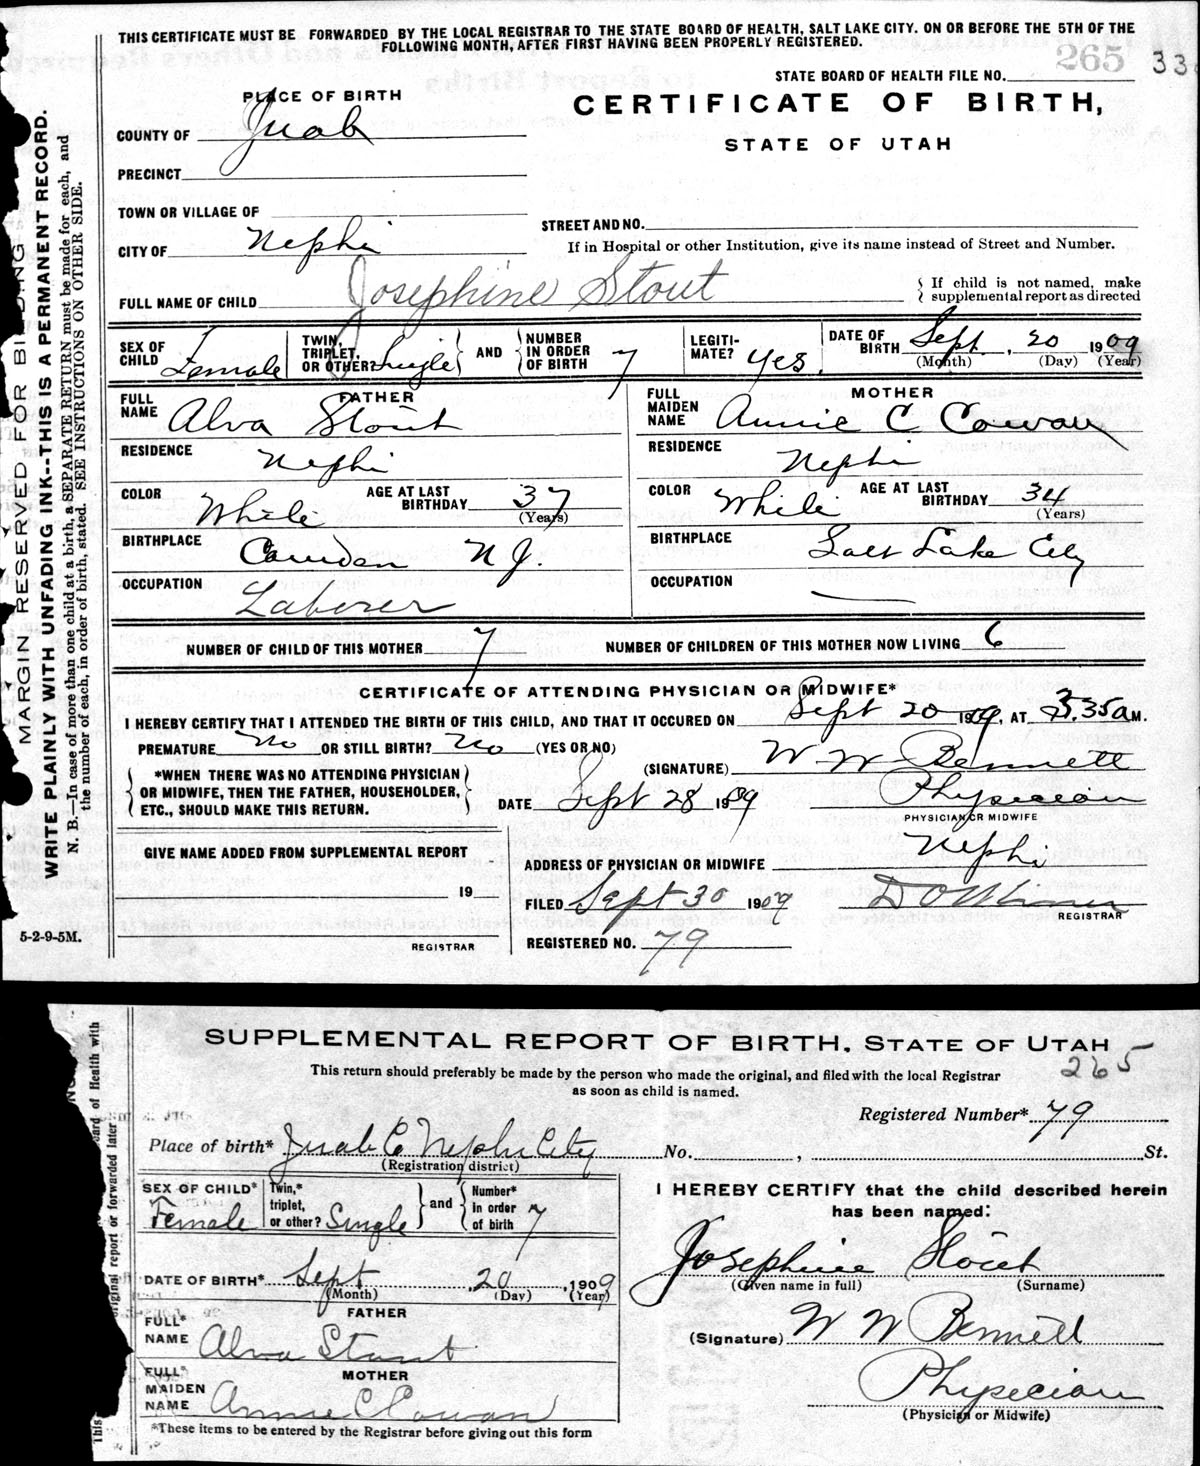 THIS CERTIFICATE MUST BE FORWARDED BY THE LOCAL REGISTRAR TO THE STATE BOARD OF HEALTH, SALT LAKE CITY. ON OR BEFORE THE 5TH OF THE
FOLLOWING MONTH, AFTER FIRST HAVING BEEN PROPERLY REGISTERED.
265
33
STATE BOARD OF HEALTH FILE NO.
PLACE OF BIRTH
CERTIFICATE OF BIRTH,
STATE OF UTAH
COUNTY OF Juab
PRECINCT
TOWN OR VILLAGE OF
STREET AND NO.
CITY OF Nephi
If in Hospital or other Institution, give its name instead of Street and Number.
FULL NAME OF CHILD Josephine Stout
{ If child is not named, make
supplemental report as directed
SEX OF CHILD Female
TWIN, TRIPLET, OR OTHER? Single } AND { NUMBER IN ORDER OF BIRTH 7
LEGITI-MATE? Yes.
DATE OF BIRTH Sept. , 20 1909
(Month) (Day) (Year)
FATHER
FULL NAME Alva Stout
RESIDENCE Nephi
COLOR White AGE AT LAST BIRTHDAY 37 (Years)
BIRTHPLACE Camden N J.
OCCUPATION Laborer
MOTHER
FULL MAIDEN NAME Annie C Cowan
RESIDENCE Nephi
COLOR White AGE AT LAST BIRTHDAY 34 (Years)
BIRTHPLACE Salt Lake City
OCCUPATION —
NUMBER OF CHILD OF THIS MOTHER 7 NUMBER OF CHILDREN OF THIS MOTHER NOW LIVING 6
CERTIFICATE OF ATTENDING PHYSICIAN OR MIDWIFE*
I HEREBY CERTIFY THAT I ATTENDED THE BIRTH OF THIS CHILD, AND THAT IT OCCURED ON Sept 20 1909, AT 3.35 A M.
PREMATURE No OR STILL BIRTH? No (YES OR NO)
(SIGNATURE) W W Bennett
{ *WHEN THERE WAS NO ATTENDING PHYSICIAN
OR MIDWIFE, THEN THE FATHER, HOUSEHOLDER,
ETC., SHOULD MAKE THIS RETURN. }
DATE Sept 28 1909 Physician
PHYSICIAN OR MIDWIFE
GIVE NAME ADDED FROM SUPPLEMENTAL REPORT
19
REGISTRAR
ADDRESS OF PHYSICIAN OR MIDWIFE Nephi
FILED Sept 30 1909
REGISTRAR
REGISTERED NO. 79
5-2-9-5M.
MARGIN RESERVED FOR BINDING
WRITE PLAINLY WITH UNFADING INK--THIS IS A PERMANENT RECORD.
N. B.—In case of more than one child at a birth, a SEPARATE RETURN must be made for each, and
the number of each, in order of birth, stated. SEE INSTRUCTIONS ON OTHER SIDE.
SUPPLEMENTAL REPORT OF BIRTH, STATE OF UTAH
265
This return should preferably be made by the person who made the original, and filed with the local Registrar
as soon as child is named.
Registered Number* 79
Place of birth* Juab Co Nephi City No. , St.
(Registration district)
SEX OF CHILD* Female
Twin,* triplet, or other? Single } and { Number* in order of birth 7
DATE OF BIRTH* Sept , 20 , 1909
(Month) (Day) (Year)
FATHER
FULL* NAME Alva Stout
MOTHER
FULL* MAIDEN NAME Annie C Cowan
*These items to be entered by the Registrar before giving out this form
I HEREBY CERTIFY that the child described herein
has been named:
Josephine Stout
(Given name in full) (Surname)
(Signature) W W Bennett
Physician
(Physician or Midwife)
ard of Health with
original report or forwarded later
This